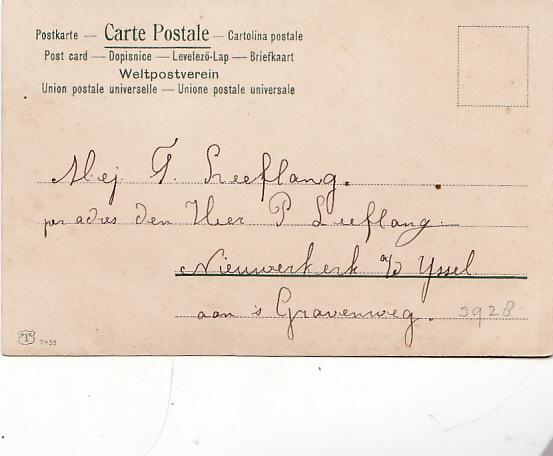 Postkarte — Carte Postale — Cartolina postale
Post card — Dopisnice — Levelező-Lap — Briefkaart
Weltpostverein
Union postale universelle — Unione postale universale
Mej. F. Leeflang.
per adres den Heer P Leeflang
Nieuwerkerk a/d Yssel
aan 's Gravenweg. 3928
7435